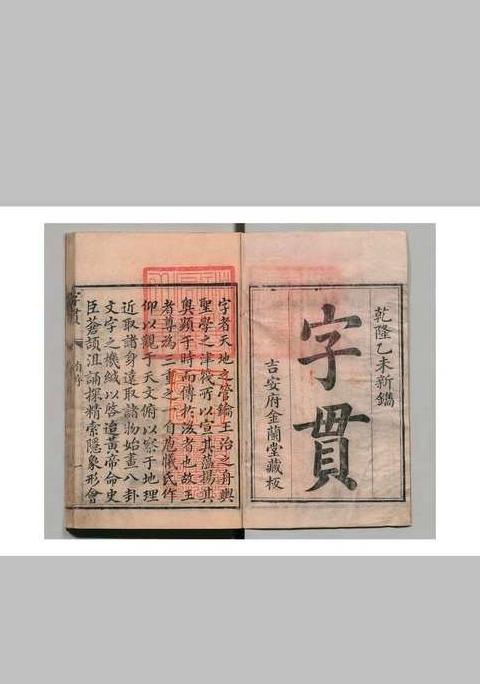 乾隆乙未新鐫
字貫
吉安府金蘭堂藏板
字者天地之管鑰王治之舟輿
聖學之津伐所以宣其蘊揚其
奧顯于時而傳於後者也故王
者尊為三重之一自庖犧氏作
仰以觀于天文俯以察于地理
近取諸身遠取諸物始畫八卦
文字之機緘以啓迨黃帝命史
臣蒼頡沮誦探精索隱象形會
字貫